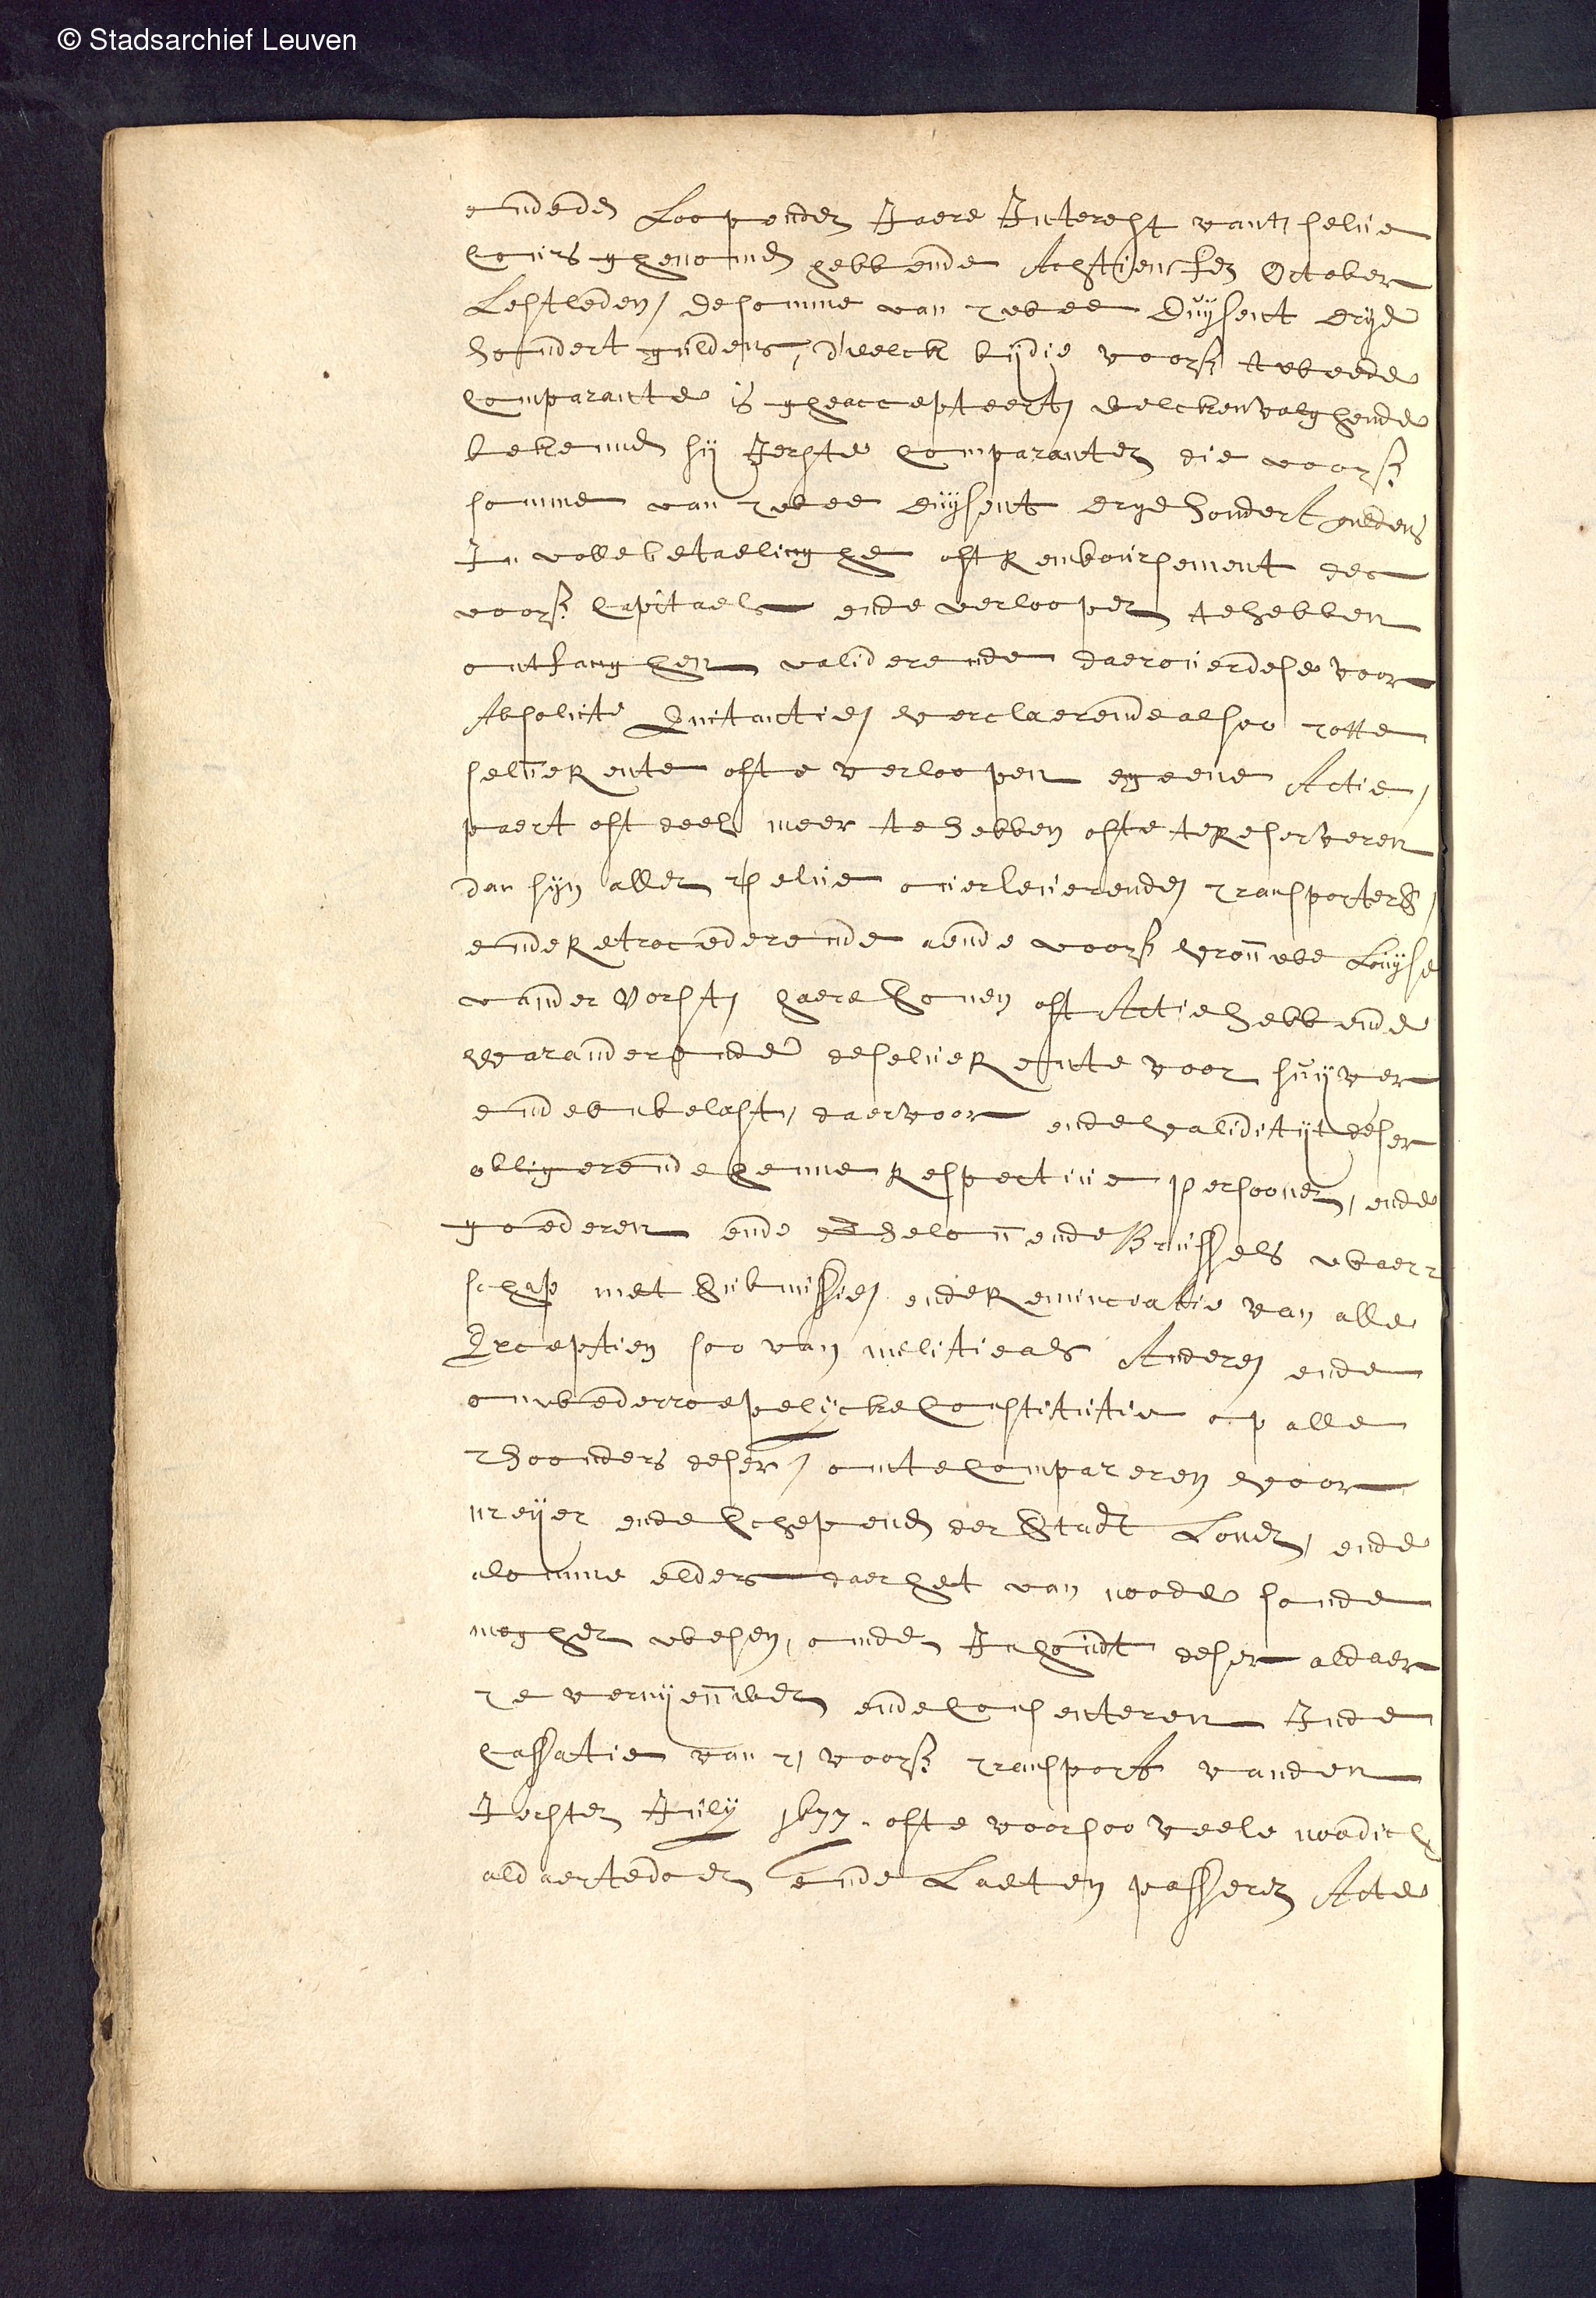 © Stadsarchief Leuven
ende den Loopenden Jaere Interest vant selue
Cours ghenomen hebbende Achtiensten October
Lestleden, de somme van twee Duysent drye
hondert guldens, d'welck bij die voors. tweede
Comparante is gheaccepteert, welckenvolghende
bekennen sij Ierste Comparanten die voors.
somme van twee duysent drye hondert guldens
In volle betaelinghe oft Rembourssement des
voors. Capitaels ende verloopen te hebben
ontfanghen validerende daerouer dese voor
Absolute Quitantie, verclaerende alsoo totte
selue Rente ofte verloopen egeene Actie,
paert oft deel meer te hebben ofte te Reserveren
dan sijn allen tselue ouerleuerende, transporterende,
ende Retrocederende aende voors. vrouwe Louyse
vander Vorst, haere hoiren oft Actie hebbende
waranderende deselue Rente voor suyver
ende onbelast, daervoor ende validityt deser
obligerende henne Respectiue persoonen, ende
goederen ende gheloouende Brussels waer
schap met submissie, ende Renunciatie van alle
Exceptien soo van melitie als Andere, ende
onwederroepelijcke Constitutie op alle
thoonders deser, om te Compareren voor
meyer ende Schepenen der Stadt Louen, ende
alomme elders daer het van noode soude
moghen wesen, omden Inhoudt deser aldaer
te vernyeuwen ende Consenteren Inde
Cassatie van t, voors. transport vanden
Iersten July 1677. ofte voor soo veele noodich
aldaer te doen ende Laeten passeren Acte